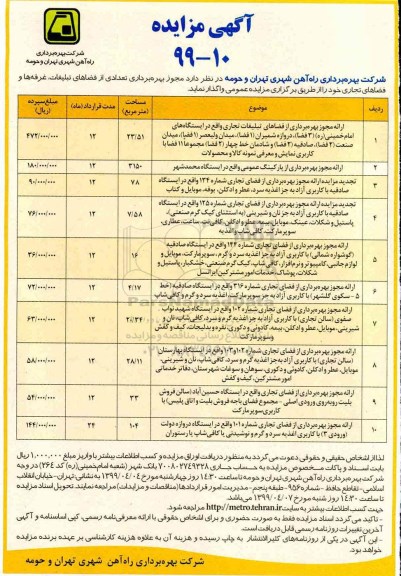 آگهی مزایده
۹۹-۱۰
شرکت بهره‌برداری
راه‌آهن شهری تهران و حومه
شرکت بهره‌برداری راه‌آهن شهری تهران و حومه در نظر دارد مجوز بهره‌برداری تعدادی از فضاهای تبلیغات، غرفه‌ها و
فضاهای تجاری خود را از طریق برگزاری مزایده عمومی واگذار نماید.
ردیف موضوع مساحت (متر مربع) مدت قرارداد (ماه) مبلغ سپرده (ریال)
۱ ارائه مجوز بهره‌برداری از فضاهای تبلیغات تجاری واقع در ایستگاه‌های
امام خمینی(ره) (۳ فضا)، دروازه شمیران (۱ فضا)، میدان ولیعصر (۱ فضا)، میدان
صنعت (۲ فضا)، صادقیه (۲ فضا) و شادمان خط چهار (۲ فضا) مجموعا ۱۱ فضا با
کاربری نمایش و معرفی نمونه کالا و محصولات
۲۳/۵۱ ۱۲ ۴۷۲/۰۰۰/۰۰۰
۲ ارائه مجوز بهره‌برداری از پارکینگ عمومی واقع در ایستگاه محمدشهر ۳۱۵۰ ۱۲ ۱۸۰/۰۰۰/۰۰۰
۳ تجدید مزایده ارائه مجوز بهره‌برداری از فضای تجاری شماره ۱۳۴ واقع در ایستگاه
صادقیه با کاربری آزاد به جز اغذیه سرد، عطر و ادکلن، بوفه، موبایل و کتاب
۷۸ ۱۲ ۹۰/۰۰۰/۰۰۰
۴ تجدید مزایده ارائه مجوز بهره‌برداری از فضای تجاری شماره ۱۲۵ واقع در ایستگاه
صادقیه با کاربری آزاد به جز نان و شیرینی (به استثنای کیک گرم صنعتی)،
پاستیل و شکلات، عینک، موبایل، بیمه، عطر و ادکلن، کافی‌نت، ساعت، عطاری،
سوپرمارکت، کافی شاپ، اغذیه
۷/۵۸ ۱۲ ۷۶/۰۰۰/۰۰۰
۵ ارائه مجوز بهره‌برداری از فضای تجاری شماره ۱۲۳ واقع در ایستگاه صادقیه
(گوشواره شمالی) با کاربری آزاد به جز اغذیه سرد و گرم، سوپرمارکت، موبایل و
لوازم جانبی، کامپیوتر و نرم‌افزار، کافی شاپ، کیک گرم صنعتی، خشکبار، پاستیل و
شکلات، پوشاک، خدمات امور مشترکین ایرانسل
۱۶ ۱۲ ۳۶/۰۰۰/۰۰۰
۶ ارائه مجوز بهره‌برداری از فضای تجاری شماره ۳۱۶ واقع در ایستگاه صادقیه (خط
۵ - سکوی گلشهر) با کاربری آزاد به جز سوپرمارکت، اغذیه سرد و گرم و کافی شاپ
۴/۱۷ ۱۲ ۷۲/۰۰۰/۰۰۰
۷ ارائه مجوز بهره‌برداری از فضای تجاری شماره ۱۰۲ واقع در ایستگاه شهید نواب
صفوی (سالن تجاری) با کاربری آزاد به جز اغذیه گرم و سرد، کافی شاپ، نان و
شیرینی، موبایل، عطر و ادکلن، بیمه، کادوئی و دکوری، نقره و بدلیجات، کیف و کفش
و سوپرمارکت
۱۲ ۶۳/۰۰۰/۰۰۰
۸ ارائه مجوز بهره‌برداری از فضای تجاری شماره ۱۰۲ و ۱۰۳ واقع در ایستگاه بهارستان
(سالن تجاری) با کاربری آزاد به جز اغذیه سرد و گرم، کافی شاپ، نان و شیرینی،
موبایل، عطر و ادکلن، کادوئی و دکوری، سوهان و سوغات شهرستان، دفاتر خدماتی
امور مشترکین، کیف و کفش
۲۸/۱۱ ۱۲ ۵۸/۰۰۰/۰۰۰
۹ ارائه مجوز بهره‌برداری از فضای تجاری واقع در ایستگاه حسین‌آباد (سالن فروش
بلیت روبه‌روی ورودی اصلی - مجموع فضای باجه فروش بلیت و اتاق پلیس) با
کاربری سوپرمارکت
۳۳ ۱۲ ۵۴/۰۰۰/۰۰۰
۱۰ ارائه مجوز بهره‌برداری از فضای تجاری شماره ۱۰۱ واقع در ایستگاه دروازه دولت
(ورودی ۳) با کاربری اغذیه سرد و گرم و نوشیدنی یا کافی شاپ یا رستوران
۱۰۴ ۲۴ ۱۴۴/۰۰۰/۰۰۰
لذا از اشخاص حقیقی و حقوقی دعوت می‌گردد به منظور دریافت اوراق مزایده و کسب اطلاعات بیشتر با واریز مبلغ ۱,۰۰۰,۰۰۰ ریال
بابت اسناد و پاکات مخصوص مزایده به حساب جاری ۷۰۰۸۰۲۷۴۹۳۲۸ بانک شهر (شعبه امام خمینی (ره) کد ۲۶۴) در وجه
شرکت بهره‌برداری راه‌آهن شهری تهران و حومه تا ساعت ۱۴:۳۰ روز چهارشنبه مورخ ۱۳۹۹/۰۴/۰۴ به نشانی: تهران - خیابان انقلاب
اسلامی - تقاطع حافظ - شماره ۹۵۶ - طبقه پنجم - مدیریت امور قراردادها (مناقصات و مزایدات) مراجعه نمایند. تحویل اسناد مزایده
تا ساعت ۱۴:۳۰ روز شنبه مورخ ۱۳۹۹/۰۴/۰۷ می‌باشد.
جهت کسب اطلاعات بیشتر به سایت http://metro.tehran.ir مراجعه شود.
- تاکید می‌گردد اسناد مزایده فقط به صورت حضوری و برای اشخاص حقوقی با ارائه معرفی‌نامه رسمی، کپی اساسنامه و آگهی
آخرین تغییرات روزنامه رسمی قابل دریافت است.
- این آگهی در یکی از روزنامه‌های کثیرالانتشار به چاپ رسیده و هزینه آن به علاوه هزینه کارشناسی بر عهده برنده مزایده
خواهد بود.
شرکت بهره‌برداری راه‌آهن شهری تهران و حومه